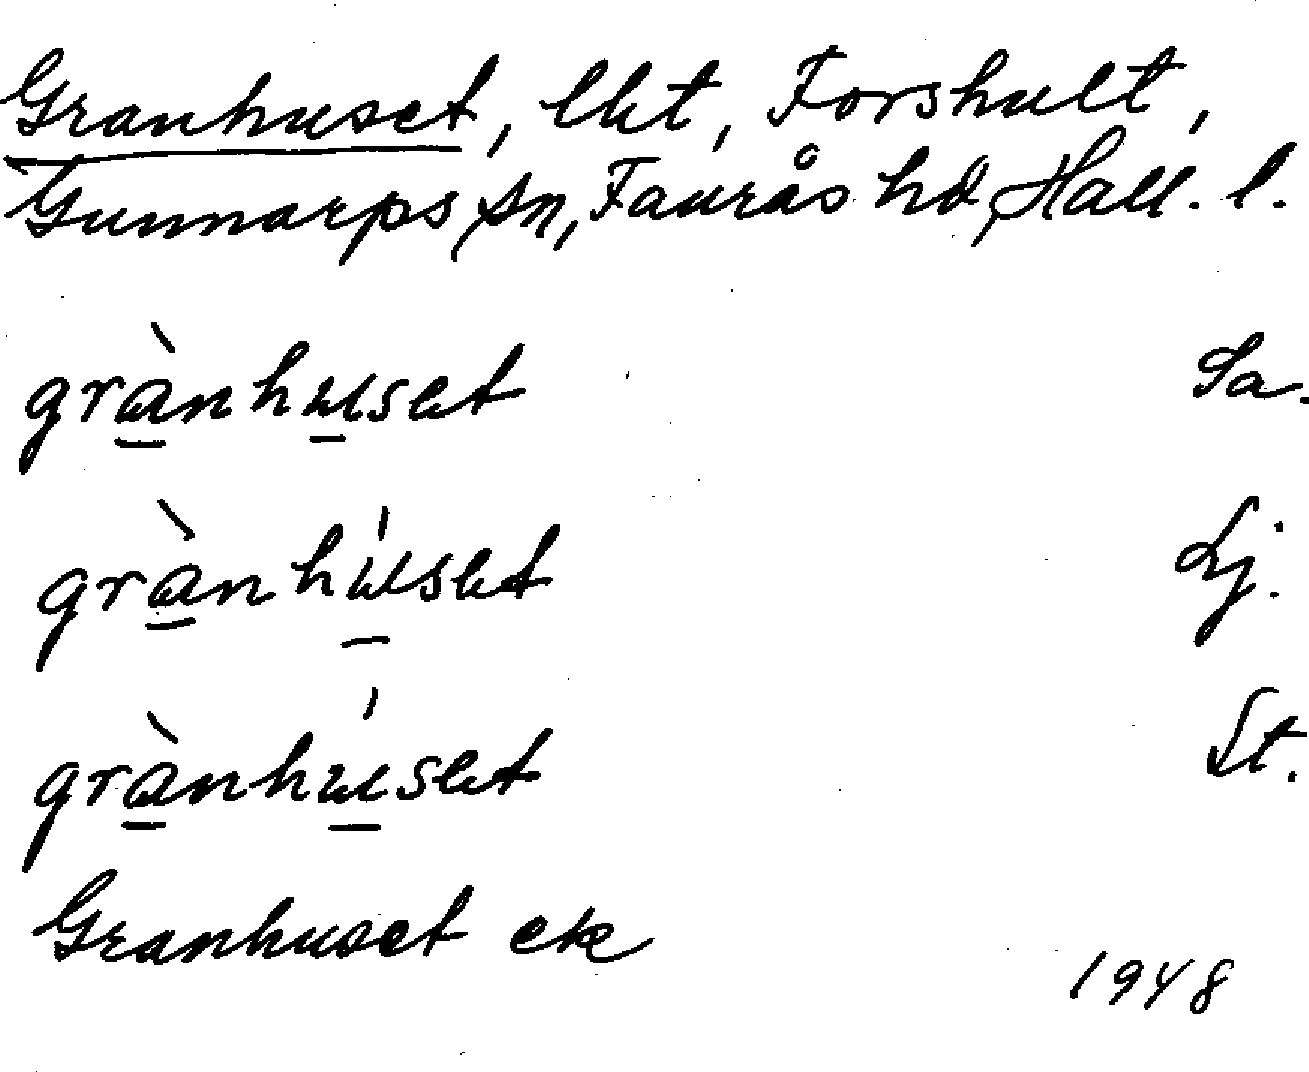 Granhuset, lht, Forshult,
Gunnarps sn, Faurås hd, Hall. l.
grànhuset Sa.
grànhúset Lj.
grànhúset St.
Granhuset ek
1948